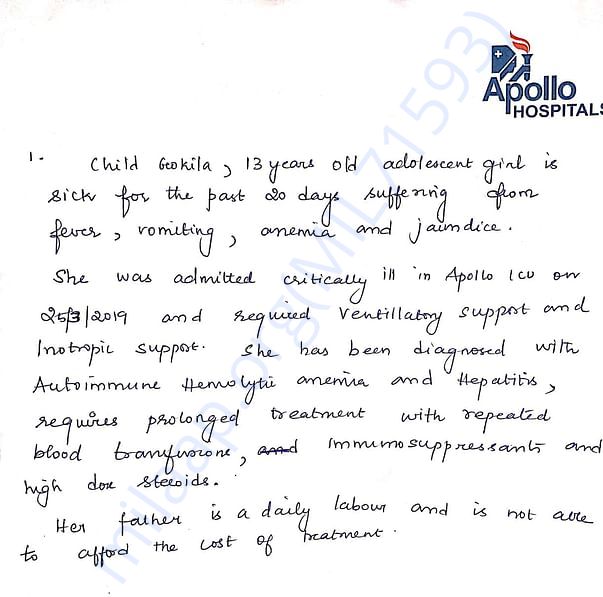 Apollo
HOSPITALS
1. Child Gokila, 13 years old adolescent girl is
sick for the past 20 days suffering from
fever, vomiting, anemia and jaundice.
She was admitted critically ill in Apollo ICU on
25/3/2019 and required Ventillatory support and
Inotropic support. She has been diagnosed with
Autoimmune Hemolytic anemia and Hepatitis,
requires prolonged treatment with repeated
blood transfusions, and immunosuppressants and
high dose steroids.
Her father is a daily labour and is not able
to afford the cost of treatment.
milaap.org(MIL71593)